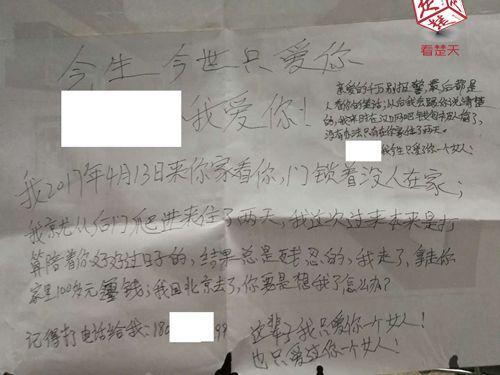 看楚天
今生今世只爱你
我爱你！
亲爱的千万别报警，最后都是
人看你的笑话，以后我会跟你说清楚
的，我来时在汉口网吧钱包被人偷了，
没有办法只有在你家住了两天。
我今生只爱了你一个女人！
我2017年4月13日来你家看你，门锁着没人在家；
我就从后门爬进来住了两天，我这次过来本来是打
算陪着你好好过日子的，结果总是残忍的，我走了，拿走你
家里100多元零钱；我回北京去了，你要是想我了怎么办？
记得打电话给我：18
99
这辈子我只爱你一个女人！
也只爱过你一个女人！